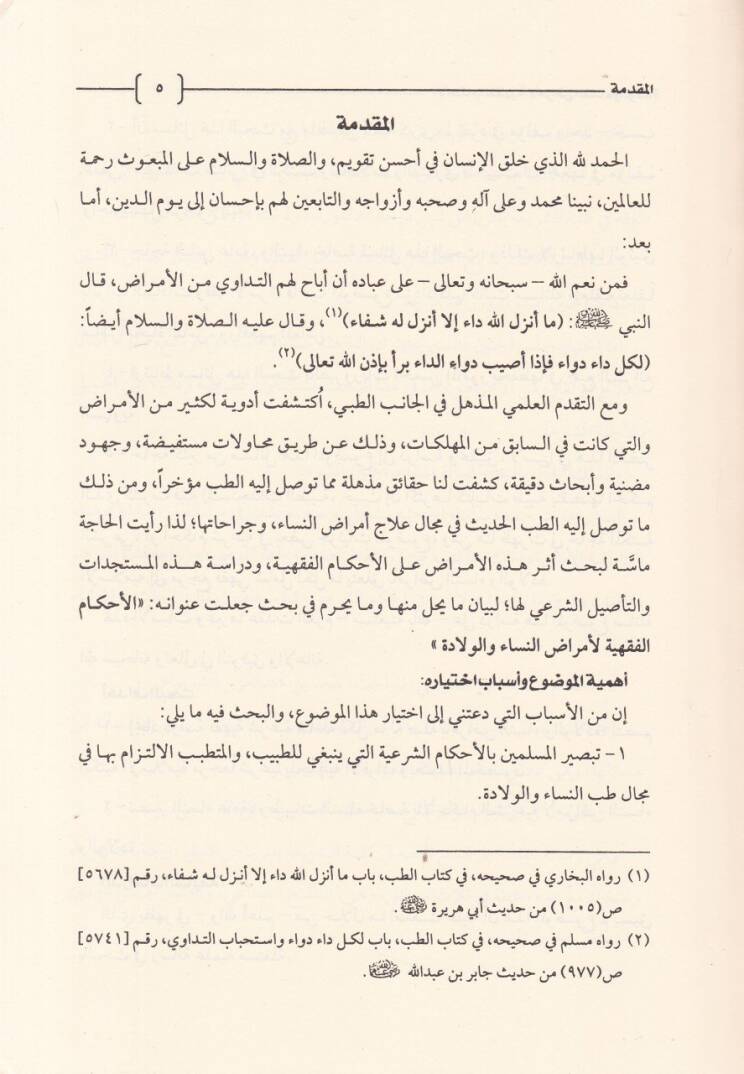 المقدمة ٥
المقدمة
الحمد لله الذي خلق الإنسان في أحسن تقويم، والصلاة والسلام على المبعوث رحمة
للعالمين، نبينا محمد وعلى آله وصحبه وأزواجه والتابعين لهم بإحسان إلى يوم الدين، أما
بعد:
فمن نعم الله – سبحانه وتعالى – على عباده أن أباح لهم التداوي من الأمراض، قال
النبي ﷺ: (ما أنزل الله داء إلا أنزل له شفاء)(١)، وقال عليه الصلاة والسلام أيضاً:
(لكل داء دواء فإذا أصيب دواء الداء برأ بإذن الله تعالى)(٢).
ومع التقدم العلمي المذهل في الجانب الطبي، اُكتشفت أدوية لكثير من الأمراض
والتي كانت في السابق من المهلكات، وذلك عن طريق محاولات مستفيضة، وجهود
مضنية وأبحاث دقيقة، كشفت لنا حقائق مذهلة مما توصل إليه الطب مؤخراً، ومن ذلك
ما توصل إليه الطب الحديث في مجال علاج أمراض النساء، وجراحاتها؛ لذا رأيت الحاجة
ماسَّة لبحث أثر هذه الأمراض على الأحكام الفقهية، ودراسة هذه المستجدات
والتأصيل الشرعي لها؛ لبيان ما يحل منها وما يحرم في بحث جعلت عنوانه: «الأحكام
الفقهية لأمراض النساء والولادة»
أهمية الموضوع وأسباب اختياره:
إن من الأسباب التي دعتني إلى اختيار هذا الموضوع، والبحث فيه ما يلي:
١- تبصير المسلمين بالأحكام الشرعية التي ينبغي للطبيب، والمتطبب الالتزام بها في
مجال طب النساء والولادة.
(١) رواه البخاري في صحيحه، في كتاب الطب، باب ما أنزل الله داء إلا أنزل له شفاء، رقم [٥٦٧٨]
ص(١٠٠٥) من حديث أبي هريرة رضي الله عنه.
(٢) رواه مسلم في صحيحه، في كتاب الطب، باب لكل داء دواء واستحباب التداوي، رقم [٥٧٤١]
ص(٩٧٧) من حديث جابر بن عبدالله رضي الله عنه.